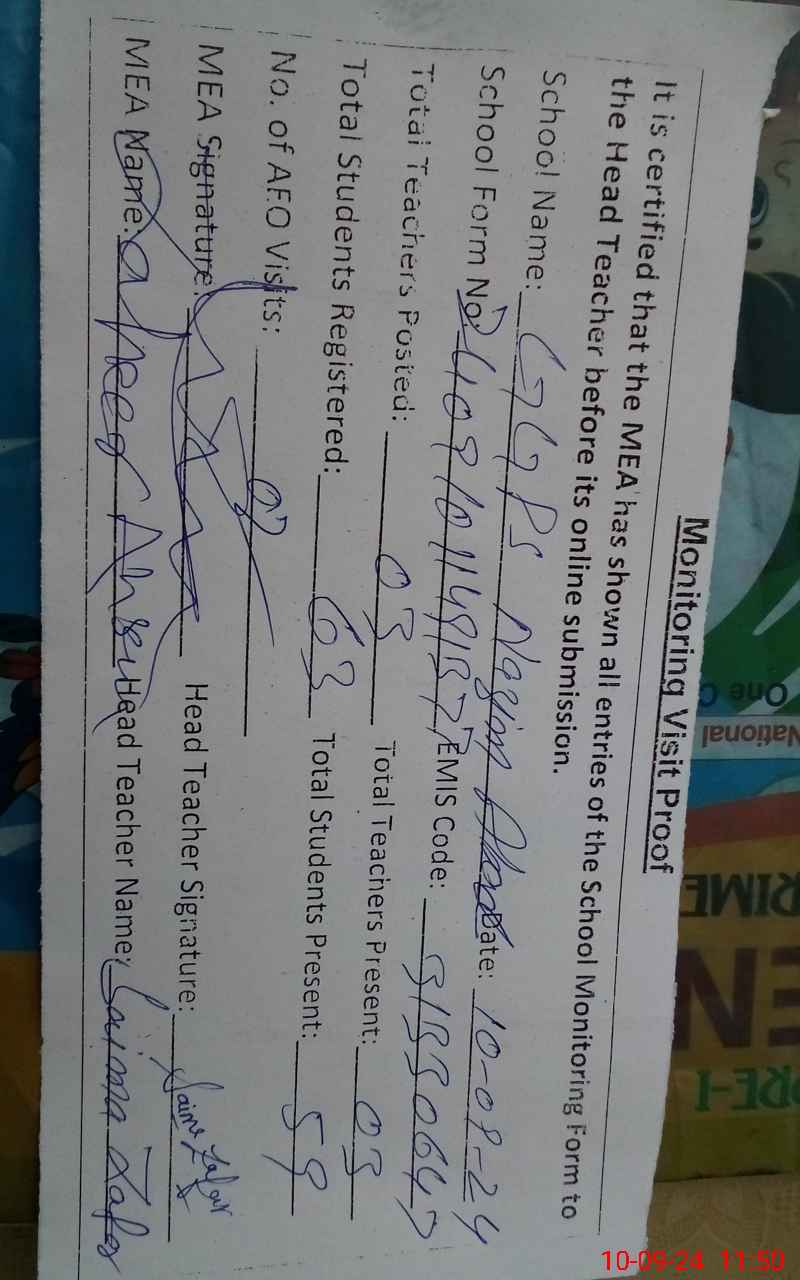 Monitoring Visit Proof
It is certified that the MEA has shown all entries of the School Monitoring Form to
the Head Teacher before its online submission.
School Name: GGPS Nagin Abad Date: 10-09-24
School Form No: EMIS Code: 31330647
Total Teachers Posted: 03 Total Teachers Present: 03
Total Students Registered: 63 Total Students Present: 59
No. of AEO Visits: 02
MEA Signature: Head Teacher Signature: Saima Zafar
MEA Name: Head Teacher Name: Saima Zafar
National
One
PRIME
EN
PRE-I
10-09-24 11:50